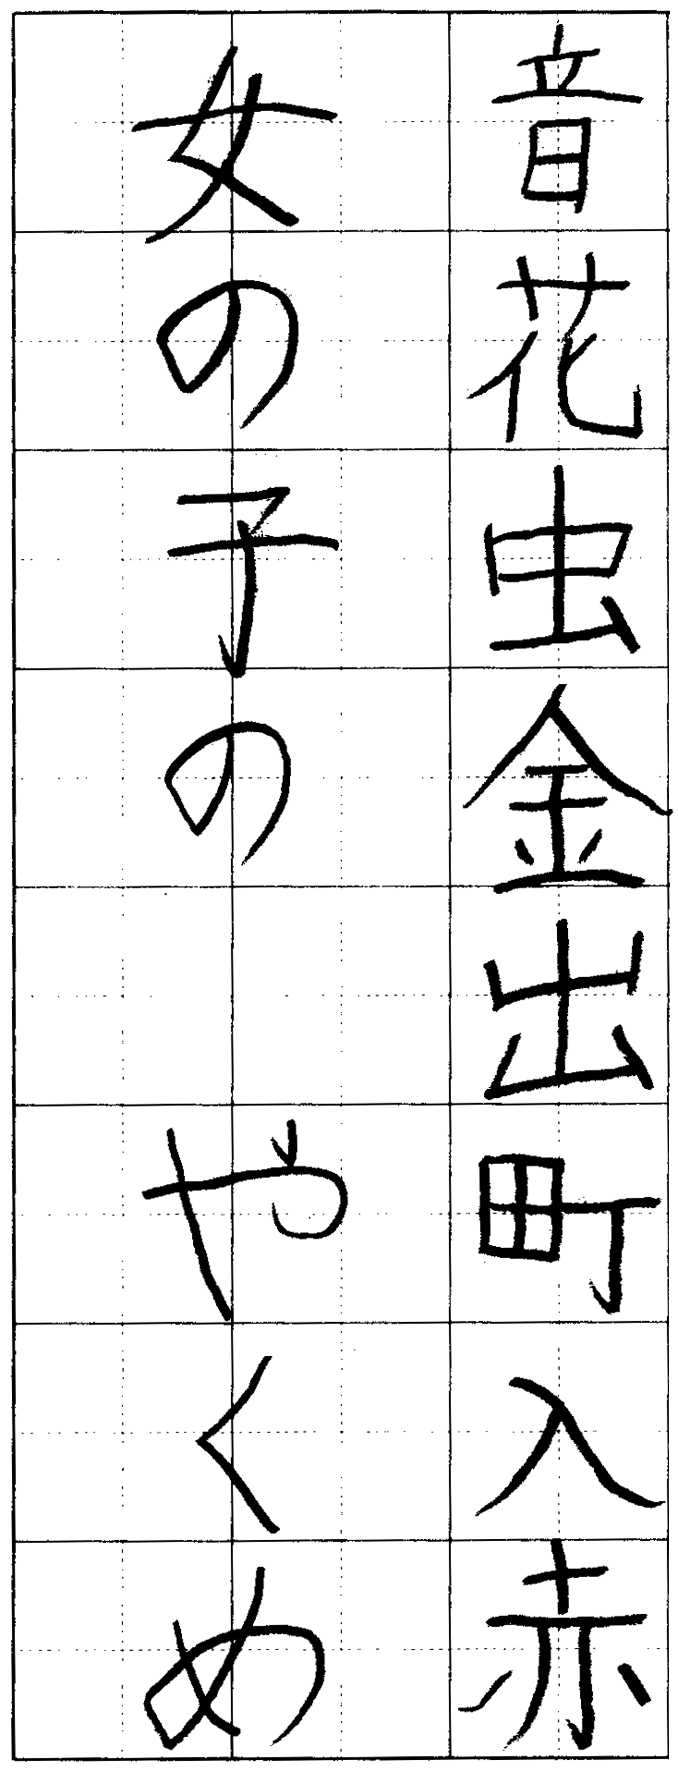 音花虫金出町入赤
女の子の　やくめ